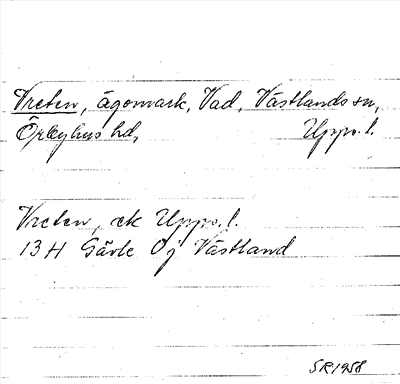 Vreten, ägomark, Vad, Västlands sn,
Örbyhus hd, Upps. l.
Vreten, ek Upps. l.
13H Gävle Oj Västland
SR 1958